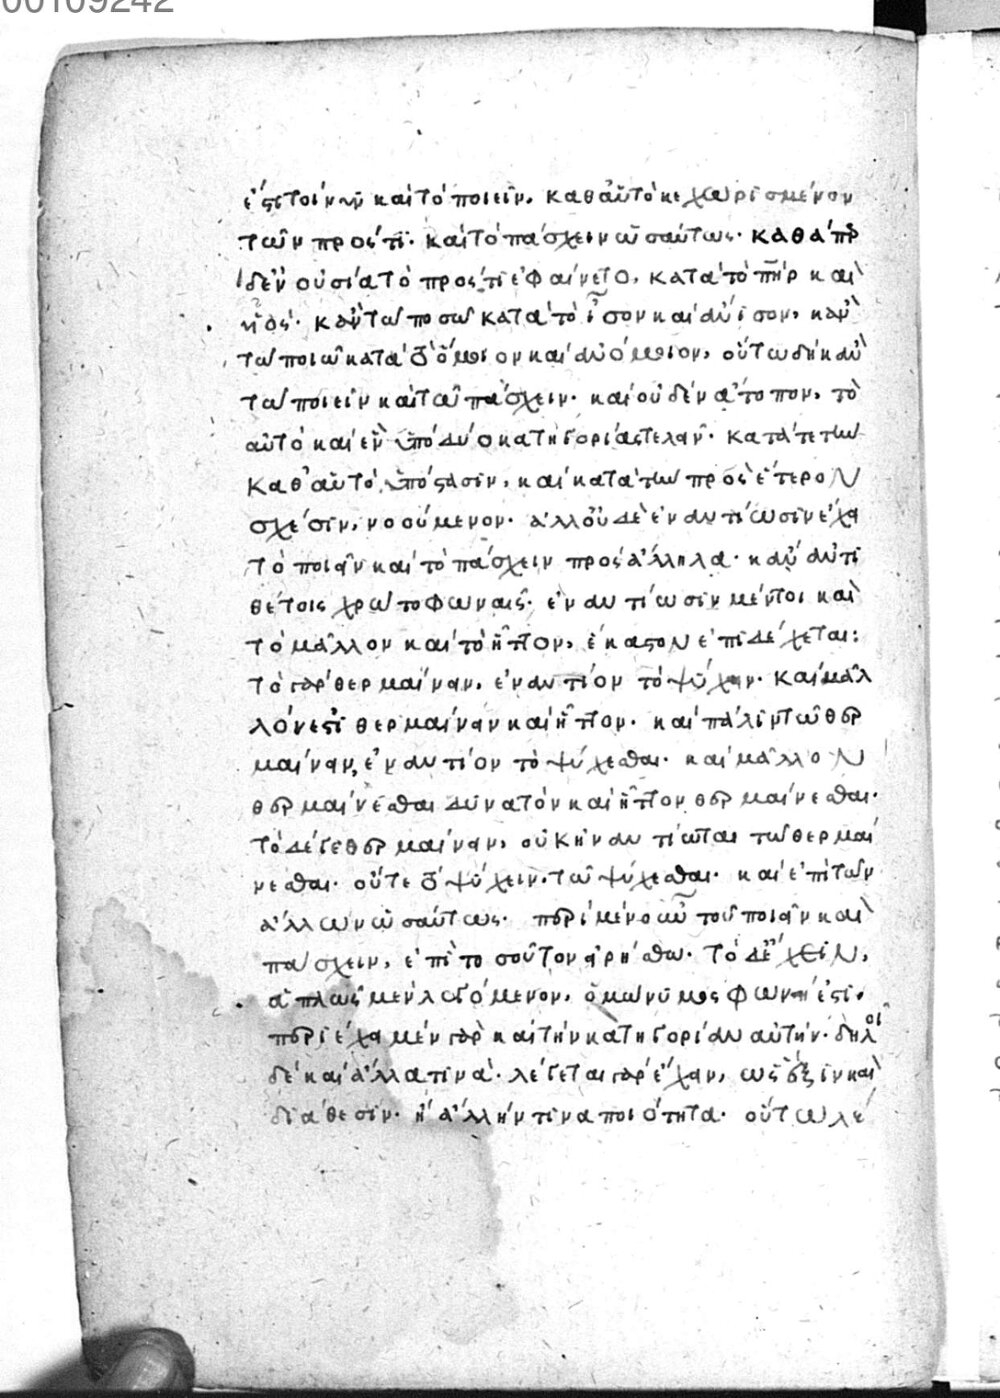 00109242
ἔστι τοίνυν καὶ τὸ ποιεῖν, καθ' αὑτὸ κεχωρισμένον
τῶν πρός τι· καὶ τὸ πάσχειν ὡσαύτως· καθάπερ
δ' ἐν οὐσία τὸ πρός τι ἐφαίνετο, κατὰ τὸ πατὴρ καὶ
υἱός· κἀν τῶ ποσῶ κατὰ τὸ ἴσον καὶ ἄνισον, κἀν
τῶ ποιῶ κατὰ τὸ ὅμοιον καὶ ἀνόμοιον, οὕτω δὴ κἀν
τῶ ποιεῖν καὶ τῶ πάσχειν· καὶ οὐδὲν ἄτοπον, τὸ
αὐτὸ καὶ ἓν ὑπὸ δύο κατηγορίας τελεῖν· κατά τε τὴν
καθ' αὑτὸ ὑπόστασιν, καὶ κατὰ τὴν πρὸς ἕτερον
σχέσιν, νοούμενον· ἀλλ' οὐδὲ ἐναντίωσιν ἔχει
τὸ ποιεῖν καὶ τὸ πάσχειν πρὸς ἄλληλα· κἂν ἀντι
θέτοις χρῶτο φωναῖς· ἐναντίωσιν μέντοι καὶ
τὸ μᾶλλον καὶ τὸ ἧττον, ἑκάτερον ἐπιδέχεται:
τὸ γὰρ θερμαίνειν, ἐναντίον τὸ ψύχειν· καὶ μᾶλ
λόν ἐστι θερμαίνειν καὶ ἧττον· καὶ πάλιν τῶ θερ
μαίνειν, ἐναντίον τὸ ψύχεσθαι· καὶ μᾶλλον
θερμαίνεσθαι δυνατὸν καὶ ἧττον θερμαίνεσθαι·
τὸ δέ γε θερμαίνειν, οὐκ ἠναντίωται τῶ θερμαί
νεσθαι· οὔτε τὸ ψύχειν τῶ ψύχεσθαι· καὶ ἐπὶ τῶν
ἄλλων ὡσαύτως· περὶ μὲν οὖν τοῦ ποιεῖν καὶ
πάσχειν, ἐπὶ τοσοῦτον εἰρήσθω· τὸ δὲ ἔχειν,
ἁπλῶς μὲν λεγόμενον, ὁμώνυμος φωνή ἐστι·
περιέχει μὲν γὰρ καὶ τὴν κατηγορίαν αὐτὴν· δηλοῖ
δὲ καὶ ἄλλα τινὰ· λέγεται γὰρ ἔχειν, ὡς ἕξιν καὶ
διάθεσιν· ἢ ἄλλην τινα ποιότητα· οὕτω λέ